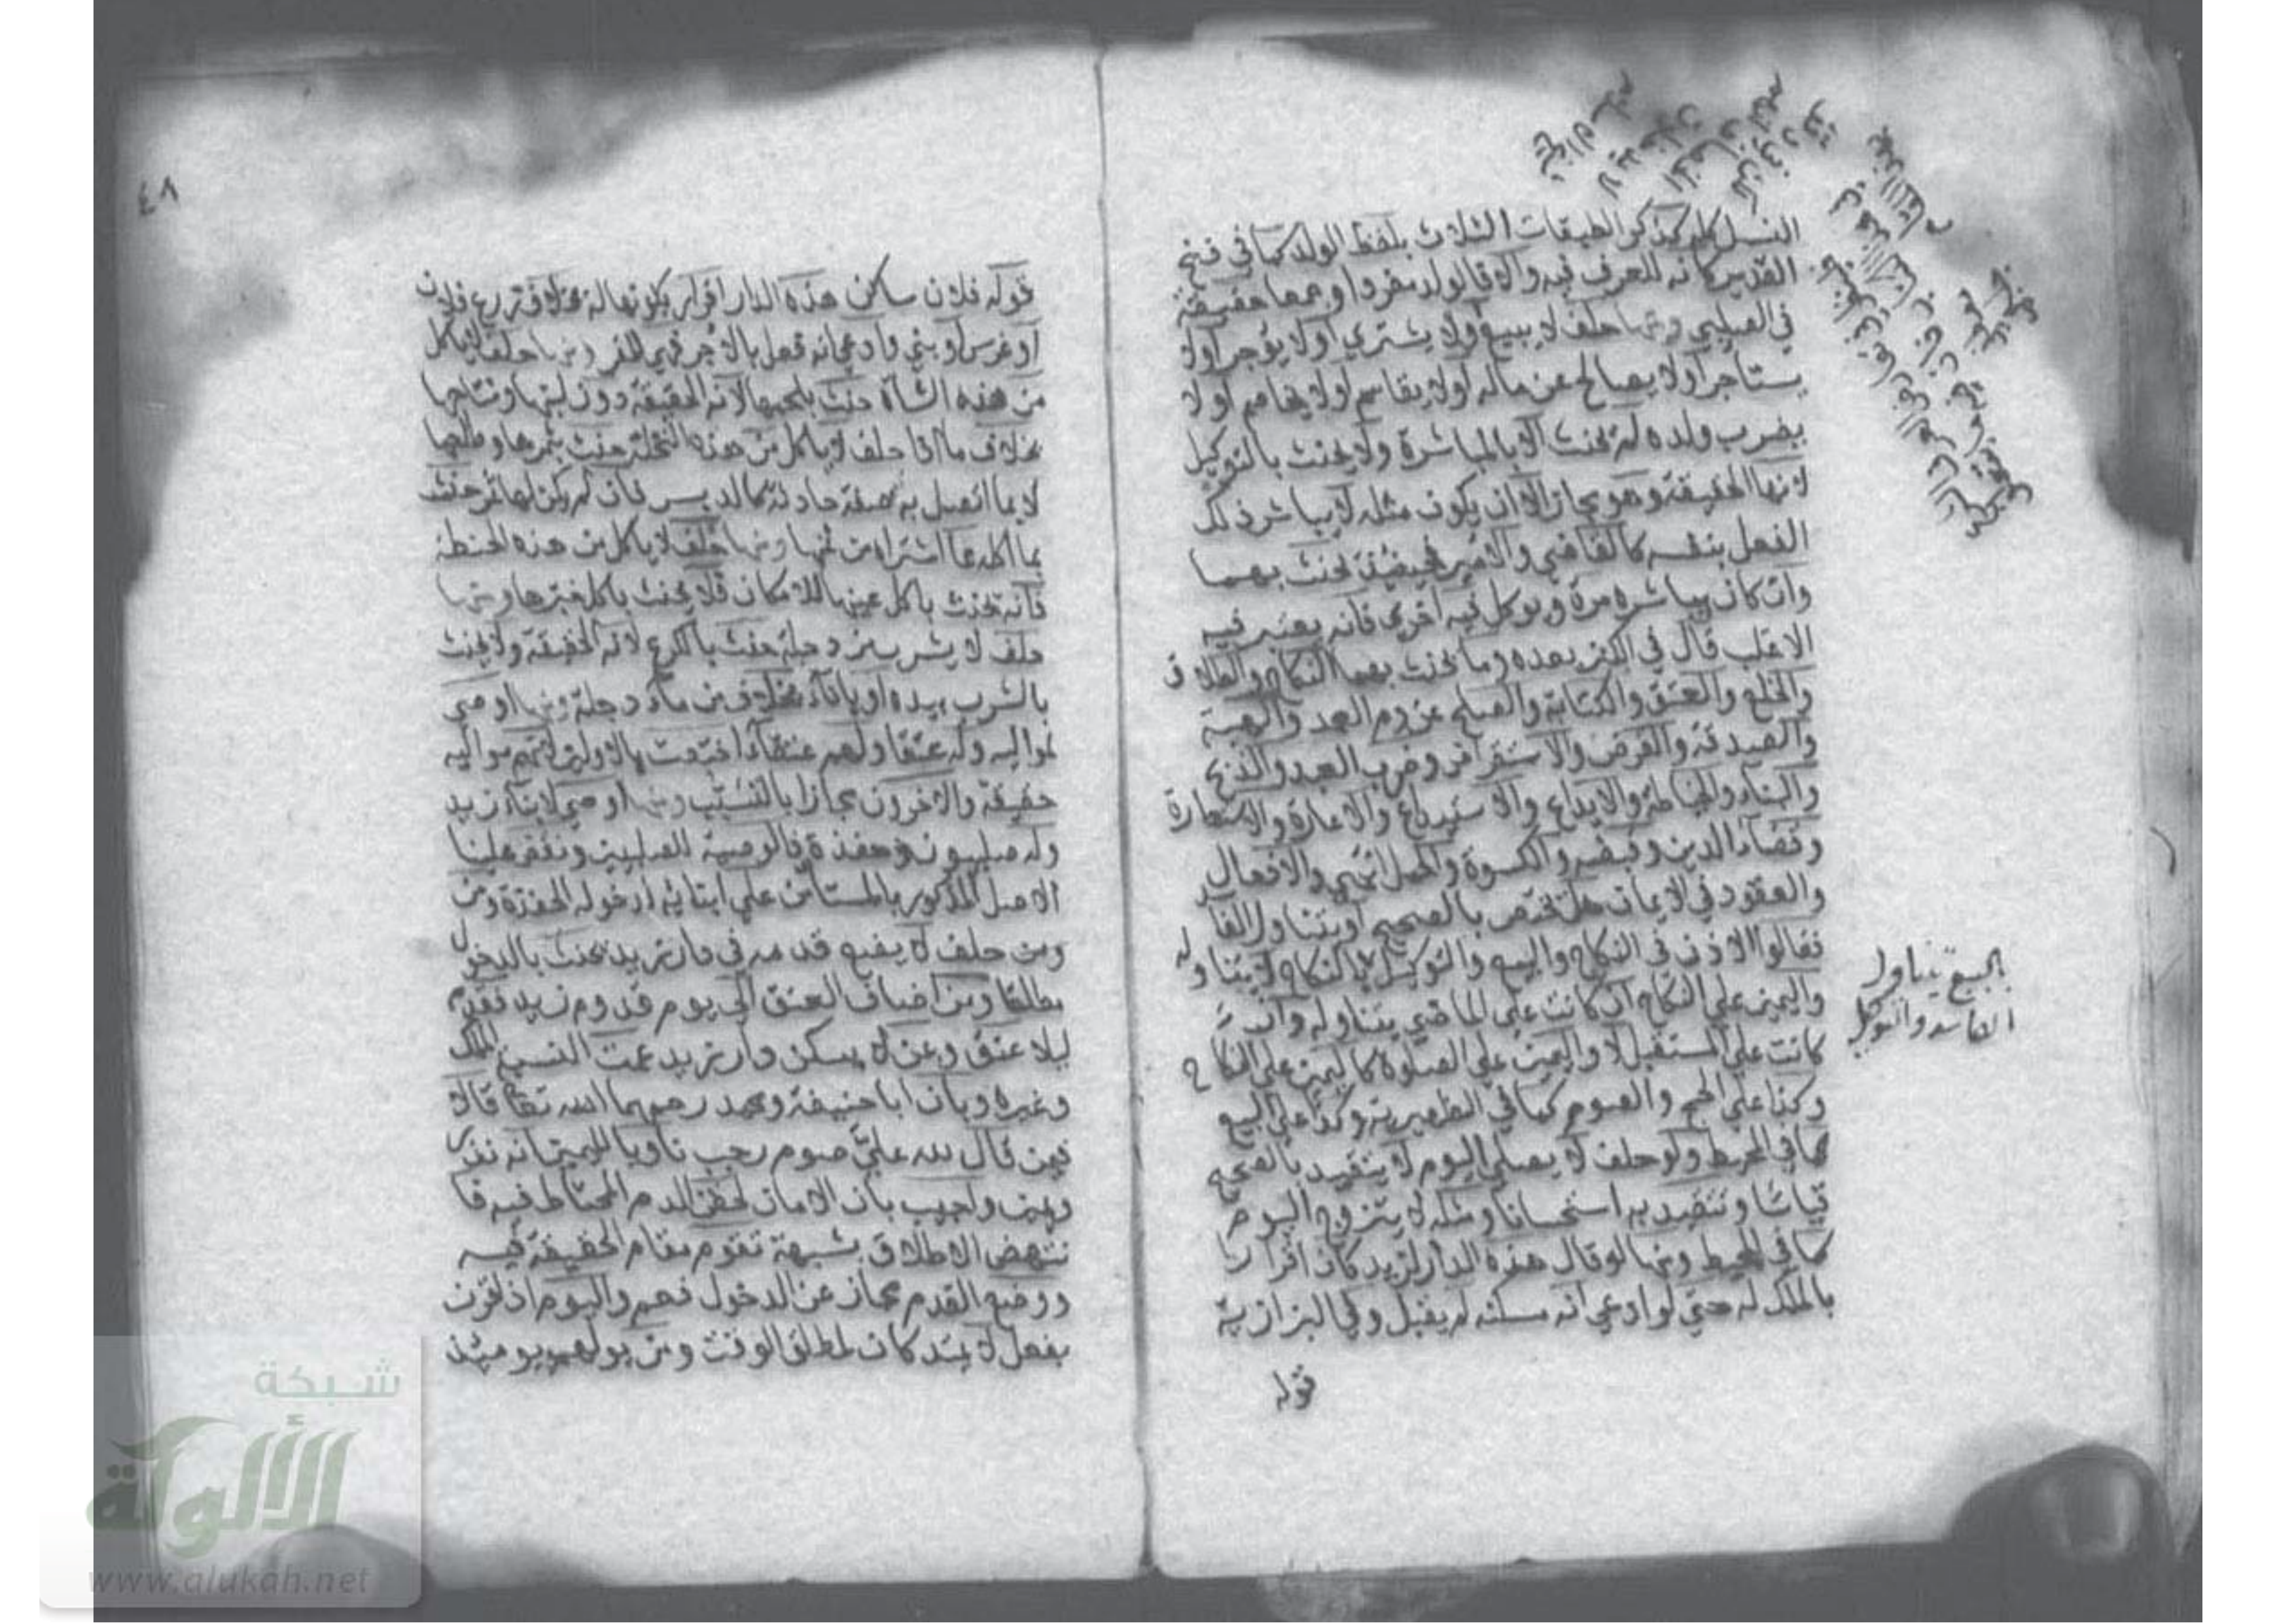 النسل كله كذكر الطبقات الثلاث بلفظ الولد كما في فتح
القدير كانه للعرف فيه والا فالولد مفردا وجمعا حقيقة
في الصلبي ومنها حلف لا يبيع اولا يشتري اولا يؤجر اولا
يستاجر اولا يصالح عن ماله اولا يقاسم اولا يخاصم اولا
يضرب ولده لم يحنث الا بالمباشرة ولا يحنث بالتوكيل
لانها الحقيقة وهو مجاز الا ان يكون مثله لا يباشر ذلك
الفعل بنفسه كالقاضي والامير فحينئذ يحنث بهما
وان كان يباشره مرة ويوكل فيه اخرى فانه يعتبر فيه
الاغلب قال في الكنز بعده وما يحنث بهما النكاح والطلاق
والخلع والعتق والكتابة والصلح عن دم العمد والهبة
والصدقة والقرض والاستقراض وضرب العبد والذبح
والبناء والخياطة والايداع والاستيداع والاعارة والاستعارة
وقضاء الدين وقبضه والكسوة والحمل انتهى والافعال
والعقود في الايمان هل تختص بالصحيح او يتناول الفاسد
فقالوا الاذن في النكاح والبيع والتوكيل بالنكاح لا يتناوله
واليمين على النكاح ان كانت على الماضي يتناوله وان
كانت على المستقبل لا واليمين على الصلوة كاليمين على النكاح
وكذا على الحج والصوم كما في الظهيرية وكذا على البيع
كما في المحيط ولو حلف لا يصلي اليوم لا يتقيد بالصحيح
قياسا وتتقيد به استحسانا ومثله لا يتزوج اليوم
كما في المحيط ومنها لو قال هذه الدار لزيد كان اقرارا
بالملك له حتى لو ادعى انه مسكنه لم يقبل وفي البزازية
قوله
بالبيع يتناول
الفاسد والتوكيل
٤٨
قوله فلان ساكن هذه الدار اقرار بكونها له بخلاف زرع فلان
او غرس او بنى وادعى انه فعل بالاجر فهي للمقر ومنها حلف لا ياكل
من هذه الشاة حنث بلحمها لانه الحقيقة دون لبنها ونتاجها
بخلاف ما اذا حلف لا ياكل من هذه النخلة حنث بثمرها وطلعها
لا بما اتصل به صفة حادثة كالدبس فان لم يكن لها ثمر حنث
بما اكله مما اشتراه من ثمنها ومنها حلف لا ياكل من هذه الحنطة
فانه يحنث باكل عينها للامكان فلا يحنث باكل خبزها ومنها
حلف لا يشرب من دجلة حنث بالكرع لانه الحقيقة ولا يحنث
بالشرب بيده او باناء بخلاف من ماء دجلة ومنها اوصى
لمواليه وله عتقا ولهم عتقاء اختصت بالاولين لانهم مواليه
حقيقة والاخرون مجازا بالتسبب ومنها اوصى لابناء زيد
وله صلبيون وحفدة فالوصية للصلبيين ونقض علينا
الاصل المذكور بالمستامن على ابنائه لدخوله الحفدة ومن
ومن حلف لا يضع قدمه في دار زيد يحنث بالدخول
مطلقا ومن اضاف العتق الى يوم قدوم زيد فقدم
ليلا عتق ومن لا يسكن دار زيد عمت النسبة الملك
وغيره وبان ابا حنيفة ومحمد رحمهما الله تعالى قالا
فيمن قال لله علي صوم رجب ناويا لليمين انه نذر
ويمين واجيب بان الامان لحقن الدم المحتاط فيه فا
نتهض الاطلاق بشبهة تقوم مقام الحقيقة فيه
ووضع القدم مجاز عن الدخول فعم واليوم اذا قرن
بفعل لا يمتد كان لمطلق الوقت ومن يولهم يومئذ
شبكة
الألوكة
www.alukah.net